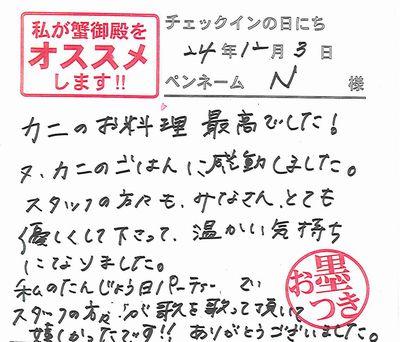 私が蟹御殿を
オススメ
します!!
チェックインの日にち
24年12月3日
ペンネーム N 様
カニのお料理 最高でした!
又、カニのごはんに感動しました。
スタッフの方々も、みなさん、とても
優しくして下さって、温かい気持ち
になりました。
私のたんじょう日パーティーでい
スタッフの方々が歌を歌って頂いて
嬉しかったです!! ありがとうございました。
お墨つき